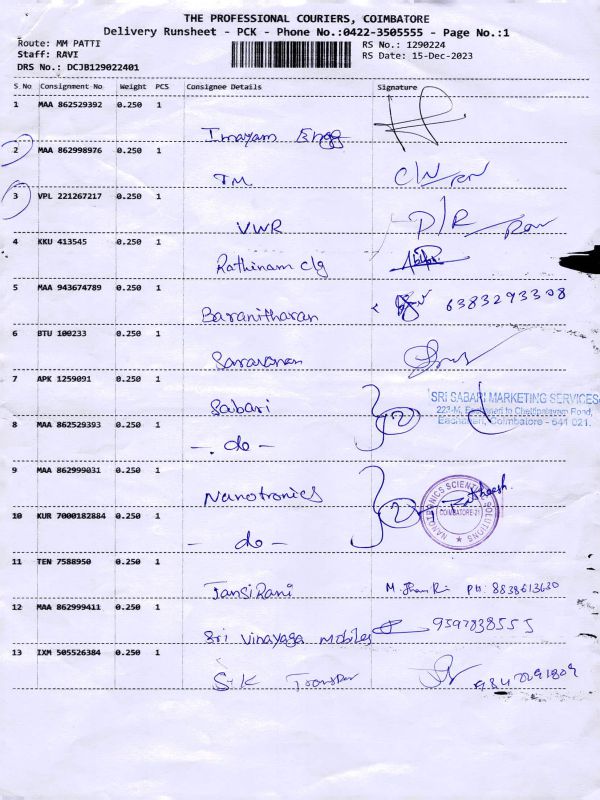 THE PROFESSIONAL COURIERS, COIMBATORE
Delivery Runsheet - PCK - Phone No.:0422-3505555 - Page No.:1
Route: MM PATTI
RS No.: 1290224
Staff: RAVI
RS Date: 15-Dec-2023
DRS No.: DCJB129022401
S No Consignment No Weight PCS Consignee Details Signature
1 MAA 862529392 0.250 1
Imayam Engg
2 MAA 862998976 0.250 1
TM C/N
3 VPL 221267217 0.250 1
VWR D/R
4 KKU 413545 0.250 1
Rathinam clg
5 MAA 943674789 0.250 1
Baranitharan 6383293308
6 BTU 100233 0.250 1
Saravanan
7 APK 1259091 0.250 1
Sabari 2
SRI SABARI MARKETING SERVICES
223-M, to Chettipalayam Road,
Eachanari, Coimbatore - 641 021.
8 MAA 862529393 0.250 1
- do -
9 MAA 862999031 0.250 1
Nanotronics 2 Ratheesh
NANOTRONICS SCIENTIFIC SOLUTIONS
COIMBATORE-21
10 KUR 7000182884 0.250 1
- do -
11 TEN 7588950 0.250 1
Jansi Rani M. PH: 8838613630
12 MAA 862999411 0.250 1
Sri Vinayaga Mobiles 9597838555
13 IXM 505526384 0.250 1